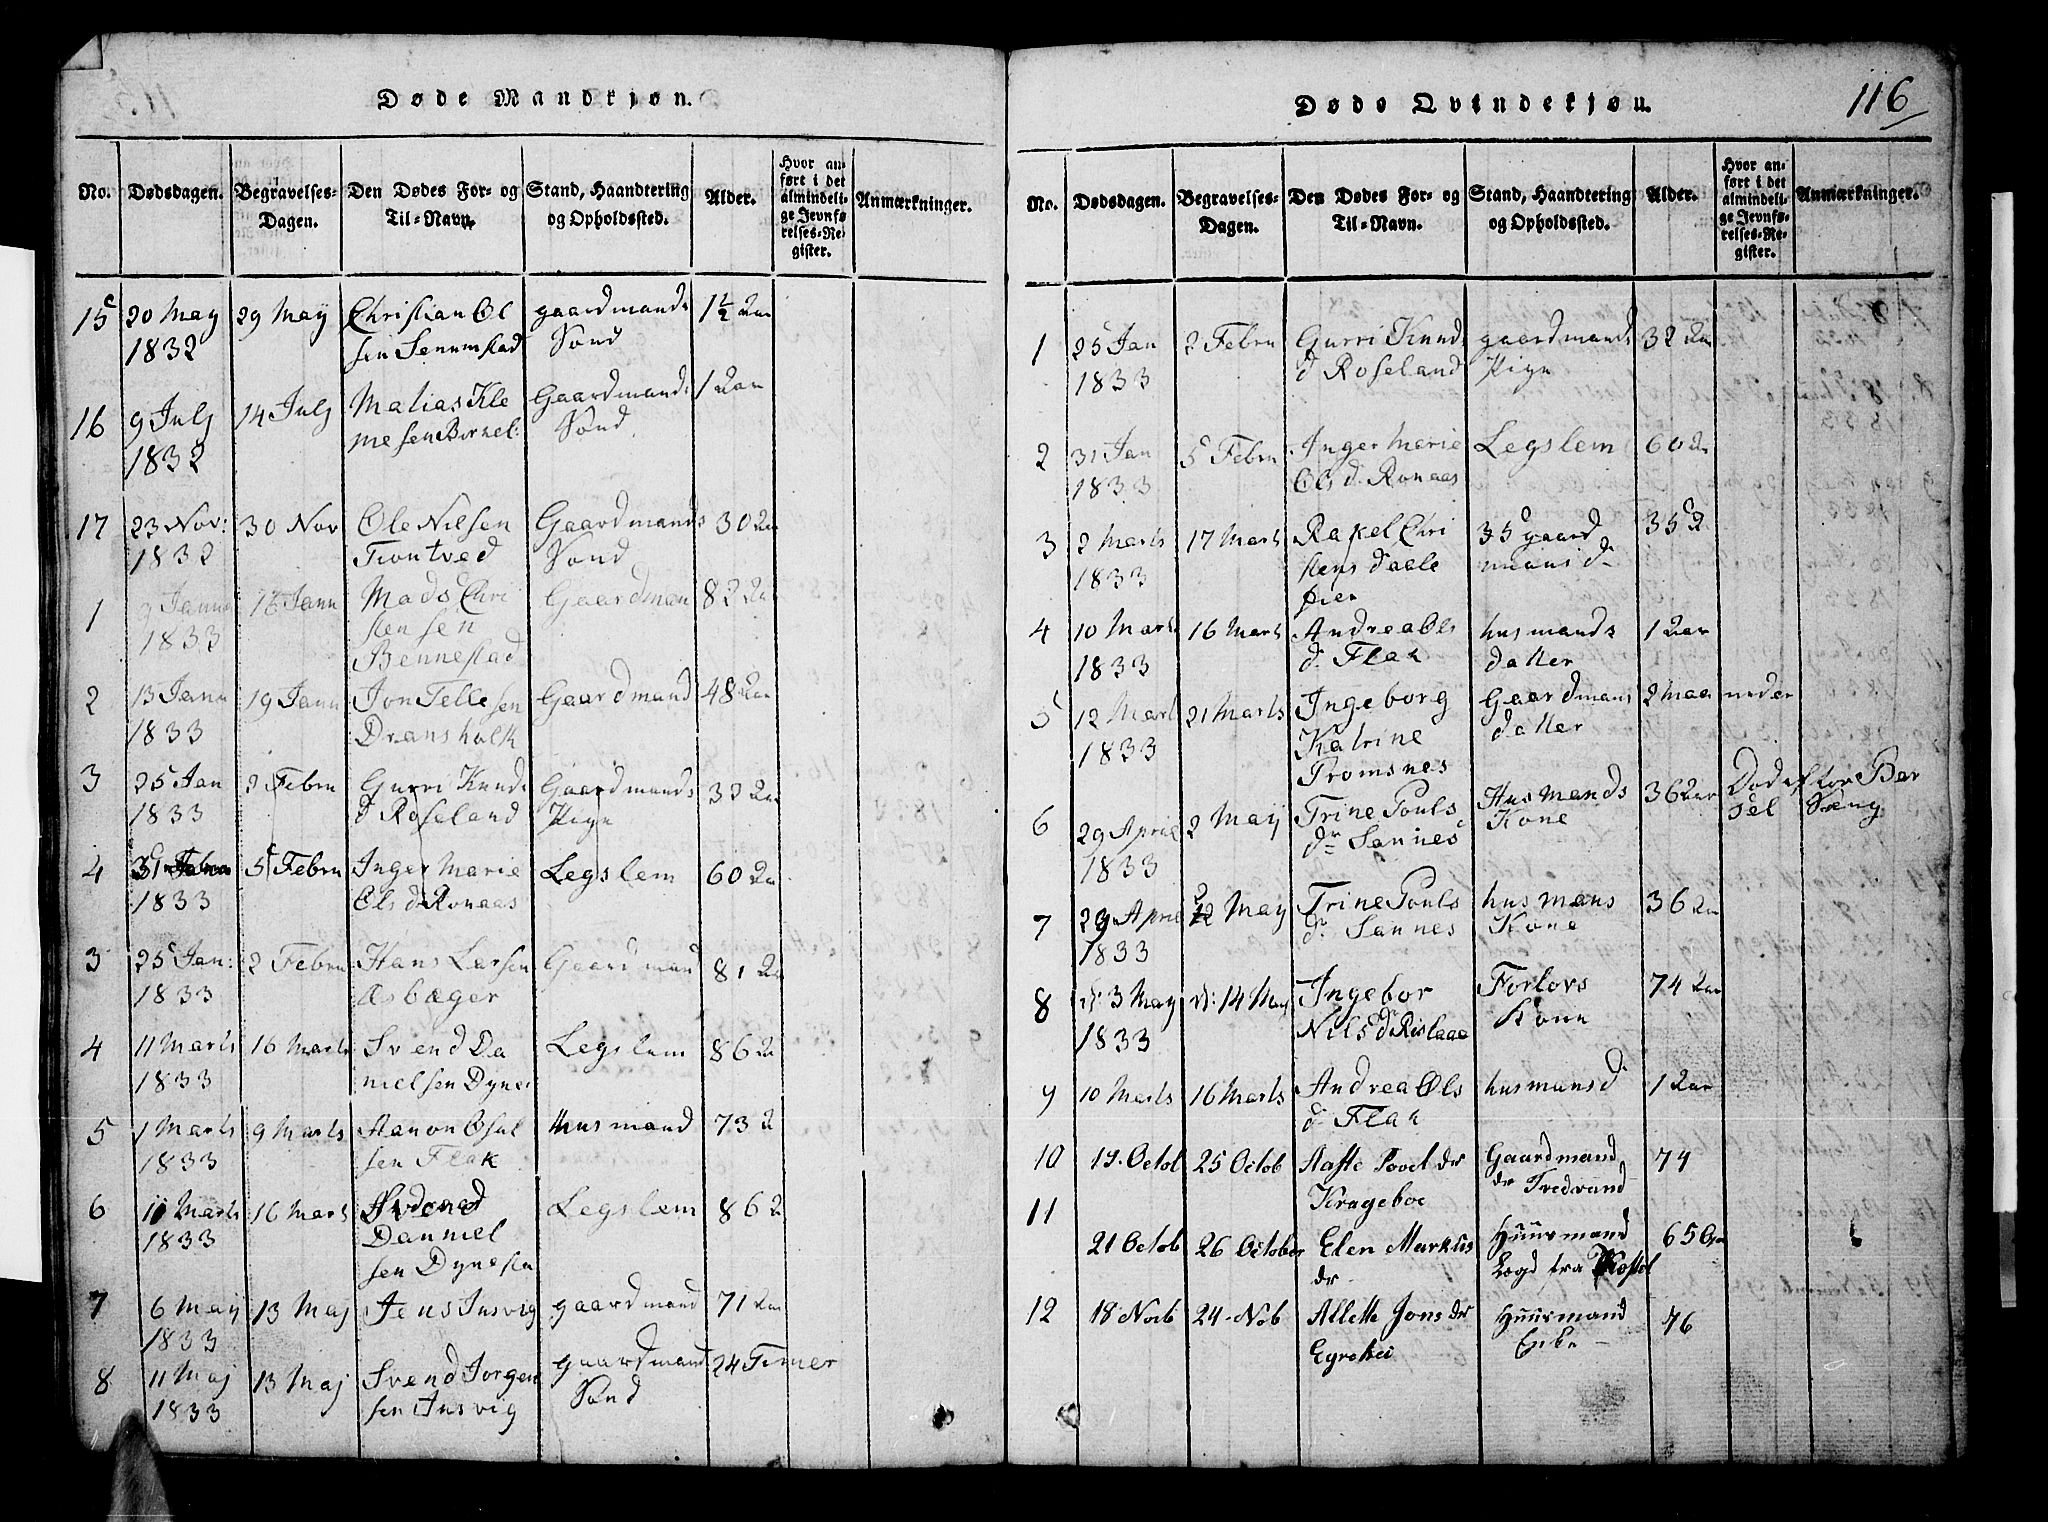 Døde Mandkjøn.
No. Dødsdagen. Begravelses-Dagen. Den Dødes For- og Til-Navn. Stand, Haandtering og Opholdssted. Alder. Hvor anført i det almindelige Jevnførelses-Register. Anmærkninger.
15 20 May 29 May Christian Ol gaardmands 1½ Aar
1832 sen Senumstad Sønd
16 9 July 14 July Matias Kle Gaardmands 1 Aar
1832 mesen Sønd
17 23 Nov: 30 Nov Ole Nilsen Gaardmands 30 Aar
1832 Trontved Sønd
1 Janu Janu Mads Chri Gaardman 82 Aar
1833 stensen
Bennestad
2 15 Janu 19 Janu Jon Tellesen Gaardmand 48 Aar
1833 Dransholt
3 25 Jan 2 Febru Gurri Knuds Gaardmands 32 Aar
1833 d Roseland Pige
4 31 5 Febru Inger Marie Legslem 60 Aar
1833 Ols d Ronaas
3 25 Jan: 2 Febru Hans Larsen Gaardmand 81 Aa
1833 Æsbøger
4 11 Marts 16 Marts Svend Da Legslem 86 Aa
1833 nielsen Dynes
5 1 Marts 9 Marts Aanon Osul husmand 73 A
1833 sen Flak
6 11 Marts 16 Mart Svend Legslem 86 A
1833 Danniel
sen Dynesen
7 6 May 13 Maj Jens Insvig gaardmand 71 Aar
1833
8 11 Maj 13 Maj Svend Jorgen gaardmand 24 Timer
1833 sen Insvig Sønd
Døde Qvindekjøn.
116
No. Dødsdagen. Begravelses-Dagen. Den Dødes For- og Til-Navn. Stand, Haandtering og Opholdssted. Alder. Hvor anført i det almindelige Jevnførelses-Register. Anmærkninger.
1 25 Jan 2 Febru Gurri Knud gaardmands 32 Aar
1833 d Roseland Pige
2 31 Jan 5 Febru Inger Marie Legslem 60 Aar
1833 Ols d. Ronaas
3 2 Marts 17 Mart Rakel Chri 35 gaard 35 A
1833 stens daale mans d
øien
4 10 Marts 16 Marts Andrea Ols husmands 1 Aar
1833 d. Flak datter
5 12 Mart 21 Marts Ingeborg Gaardmans 2 Maa neder
1833 Katrine datter
Tromsnes
6 29 April 2 May Trine Pouls Husmands 36 Aar Død efter Bar
1833 dr Sannes Kone sel Sæng
7 29 April 2 May Trine Pouls husmans 36 Aar
1833 d. Sannes Kone
8 d: 3 May d: 14 May Ingebor Forlovs 74 Aar
1833 Nils d Rislaae Kone
9 10 Marts 16 Marts Andrea Ols husmans d 1 Aar
d. Flak
10 17. Octob 25 Octob Aaste Povel dr Gaardmand 74
Krageboe dr Tredvand
11 21 Octob 26 October Elen Markus Huusmand 65 Aar
dr Lægd fra
12 18 Novb 24 Nob Allette Jons dr Huusmand 76
Eyrehei Enke